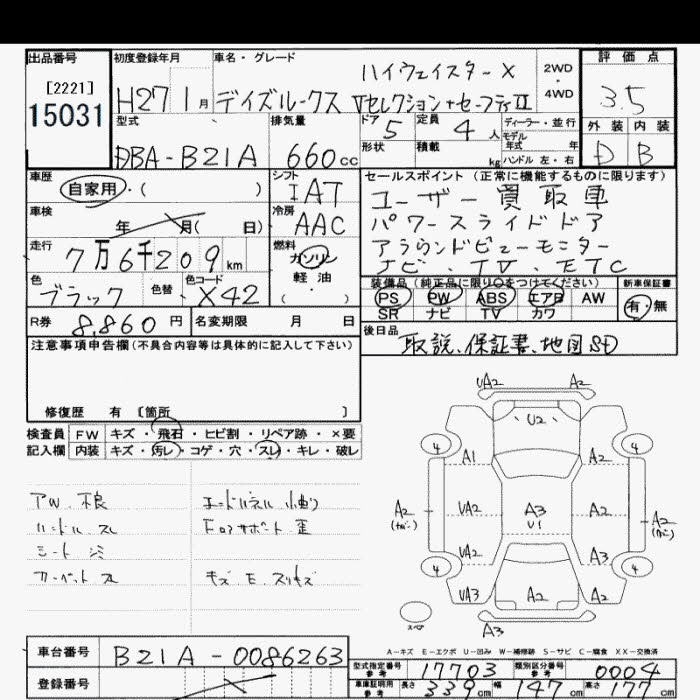 出品番号
[2221]
15031
初度登録年月
H27 1月
車名・グレード
ハイウェイスターX
デイズルークス Vセレクション+セーフティII
2WD・4WD
評価点
3.5
外装 内装
D B
型式
DBA-B21A
排気量
660cc
ドア 5
定員 4人
形状
積載 kg
ディーラー・並行
モデル年式 年
ハンドル 左・右
車歴
自家用・( )
シフト
IAT
車検
年 月( 日)
冷房
AAC
走行
7万6千209km
燃料
ガソリン
軽油
( )
色
ブラック
色替
色コード
X42
セールスポイント (正常に機能するものに限ります)
ユーザー買取車
パワースライドドア
アラウンドビューモニター
ナビ、TV、ETC
装備品 (純正品に限り○をつけてください)
PS PW ABS エアB AW
SR ナビ TV カワ
新車保証書
有・無
R券 8,860円
名変期限 月 日
後日品
取説、保証書、地図SD
注意事項申告欄(不具合内容等は具体的に記入して下さい)
修復歴 有 [箇所 ]
検査員記入欄
FW キズ・飛石・ヒビ割・リペア跡・×要
内装 キズ・汚レ・コゲ・穴・スレ・キレ・破レ
ハンドル スレ
シート シミ
カーペット スレ
キズ E スリキズ
UA2 A2
U2
4 4
A1 A2
A2 UA2 A3 A2 A2
U1
UA2 A3
4 4
UA3 A2 A2
スペア
A3
A-キズ E-エクボ U-凹み W-補修跡 S-サビ C-腐食 XX-交換済
車台番号 B21A-0086263
登録番号
型式指定番号 参考 17703
類別区分番号 参考 0004
車庫証明用 参考 長さ 339cm 幅 147cm 高さ 177cm